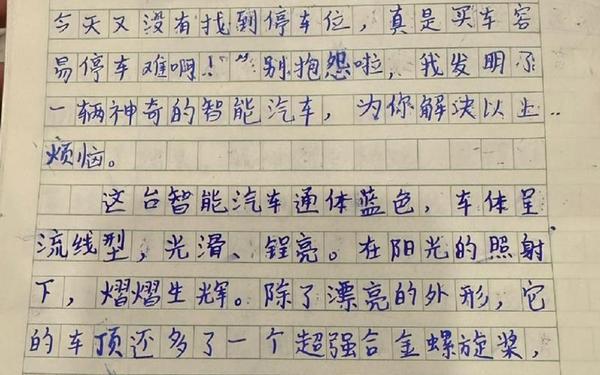 今天又没有找到停车位，真是买车容
易停车难啊！”别抱怨啦，我发明了
一辆神奇的智能汽车，为你解决以上
烦恼。
这台智能汽车通体蓝色，车体呈
流线型，光滑、锃亮。在阳光的照射
下，熠熠生辉。除了漂亮的外形，它
的车顶还多了一个超强合金螺旋桨，